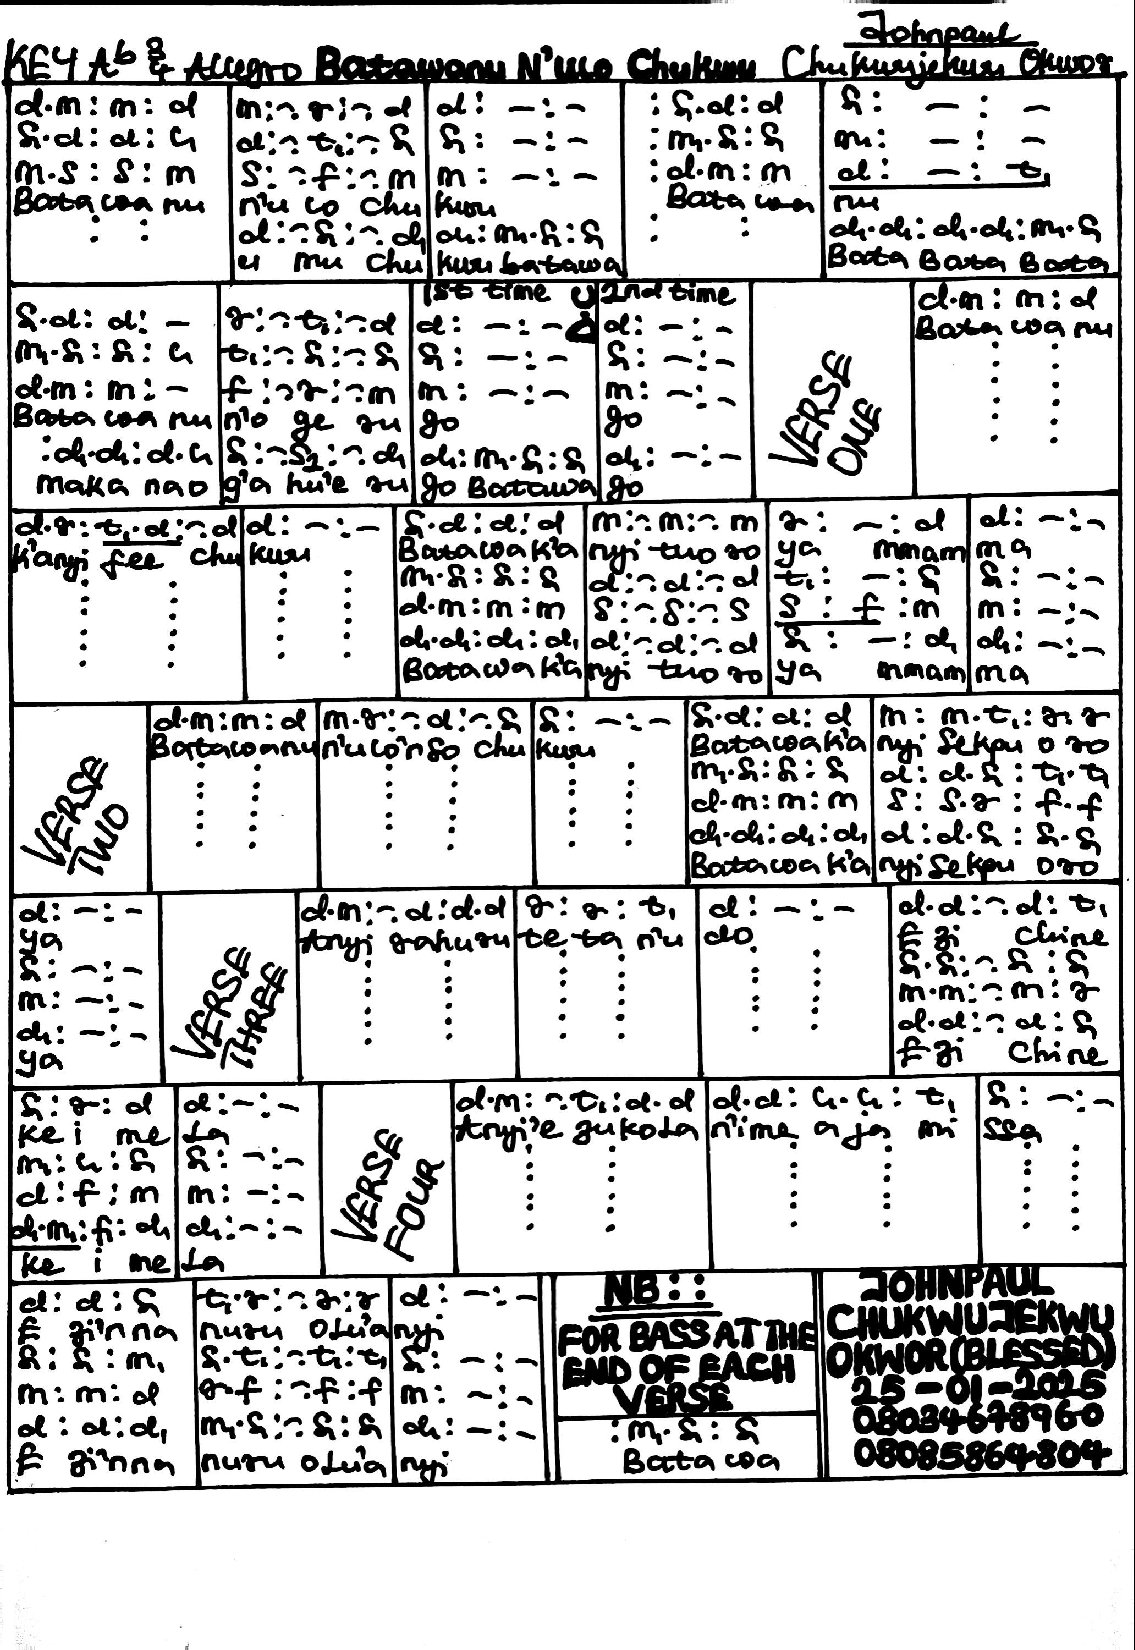 Johnpaul
KEY Ab 3/4 Allegro Batawanu N'ulo Chukwu Chukwujekwu Okwor
d.m : m : d
s₁.d : d : l₁
m.s : s : m
Batawanu
: :
m : - . r : - . d
d : - . t₁ : - . s₁
s : - . f : - . m
n'u lo chu
d : - . s₁ : - . d₁
u mu chu
d : - : -
s₁ : - : -
m : - : -
kwu
d₁ : m₁.s₁ : s₁
kwu batawa
: s₁.d : d
: m₁.s₁ : s₁
: d.m : m
Batawa
: :
s₁ : - : -
m₁ : - : -
d : - : t₁
nu
d₁.d₁ : d₁.d₁ : m₁.s₁
Bata Bata Bata
s₁.d : d : -
m₁.s₁ : s₁ : l₁
d.m : m : -
Bata wa nu
: d₁.d₁ : d.l₁
maka na o
r : - . t₁ : - . d
t₁ : - . s₁ : - . s₁
f : - . r : - . m
n'o ge ru
s₁ : - . s₂ : - . d₁
g'a hu'e ru
1st time
d : - : -
s₁ : - : -
m : - : -
go
d₁ : m₁.s₁ : s₁
go Batawa
2nd time
d : - : -
s₁ : - : -
m : - : -
go
d₁ : - : -
go
VERSE
ONE
d.m : m : d
Bata wa nu
d.r : t₁.d : - . d
k'anyi fee chu
d : - : -
kwu
s₁.d : d : d
Batawa k'a
m₁.s₁ : s₁ : s₁
d.m : m : m
d₁.d₁ : d₁ : d₁
Batawa k'a
m : - . m : - . m
nyi tuo ro
d : - . d : - . d
s : - . s : - . s
d : - . d : - . d
nyi tuo ro
r : - : d
ya mmam
t₁ : - : s₁
s : f : m
s₁ : - : d₁
ya mmam
d : - : -
ma
s₁ : - : -
m : - : -
d₁ : - : -
ma
VERSE
TWO
d.m : m : d
Batawanu
m.r : - . d : - . s₁
n'u lo'n so chu
s₁ : - : -
kwu
s₁.d : d : d
Batawa k'a
m₁.s₁ : s₁ : s₁
d.m : m : m
d₁.d₁ : d₁ : d₁
Batawa k'a
m : m.t₁ : r.r
nyi sekpu o ro
d : d.s₁ : t₁.t₁
s : s.r : f.f
d : d.s₁ : s₁.s₁
nyi sekpu oro
d : - : -
ya
s₁ : - : -
m : - : -
d₁ : - : -
ya
VERSE
THREE
d.m : - . d : d.d
Anyi rahuru
r : r : t₁
te ta n'u
d : - : -
do
d.d : - . d : t₁
E zi Chine
s₁.s₁ : - . s₁ : s₁
m.m : - . m : r
d.d : - . d : s₁
E zi Chine
s₁ : r : d
ke i me
m₁ : l₁ : s₁
d : f : m
d₁.m₁ : f₁ : d₁
ke i me
d : - : -
la
s₁ : - : -
m : - : -
d₁ : - : -
la
VERSE
FOUR
d.m : - . t₁ : d.d
Anyi'e zukola
d.d : l₁.l₁ : t₁
n'ime a ja mi
s₁ : - : -
ssa
d : d : s₁
E zi'nna
s₁ : s₁ : m₁
m : m : d
d : d : d₁
E zi'nna
t₁.r : - . r : r
nuru olu'a
s₁.t₁ : - . t₁ : t₁
r.f : - . f : f
m₁.s₁ : - . s₁ : s₁
nuru olu'a
d : - : -
nyi
s₁ : - : -
m : - : -
d₁ : - : -
nyi
NB : :
FOR BASS AT THE
END OF EACH
VERSE
: m₁.s₁ : s₁
Bata wa
JOHNPAUL
CHUKWUJEKWU
OKWOR (BLESSED)
25-01-2025
08034678960
08085864804